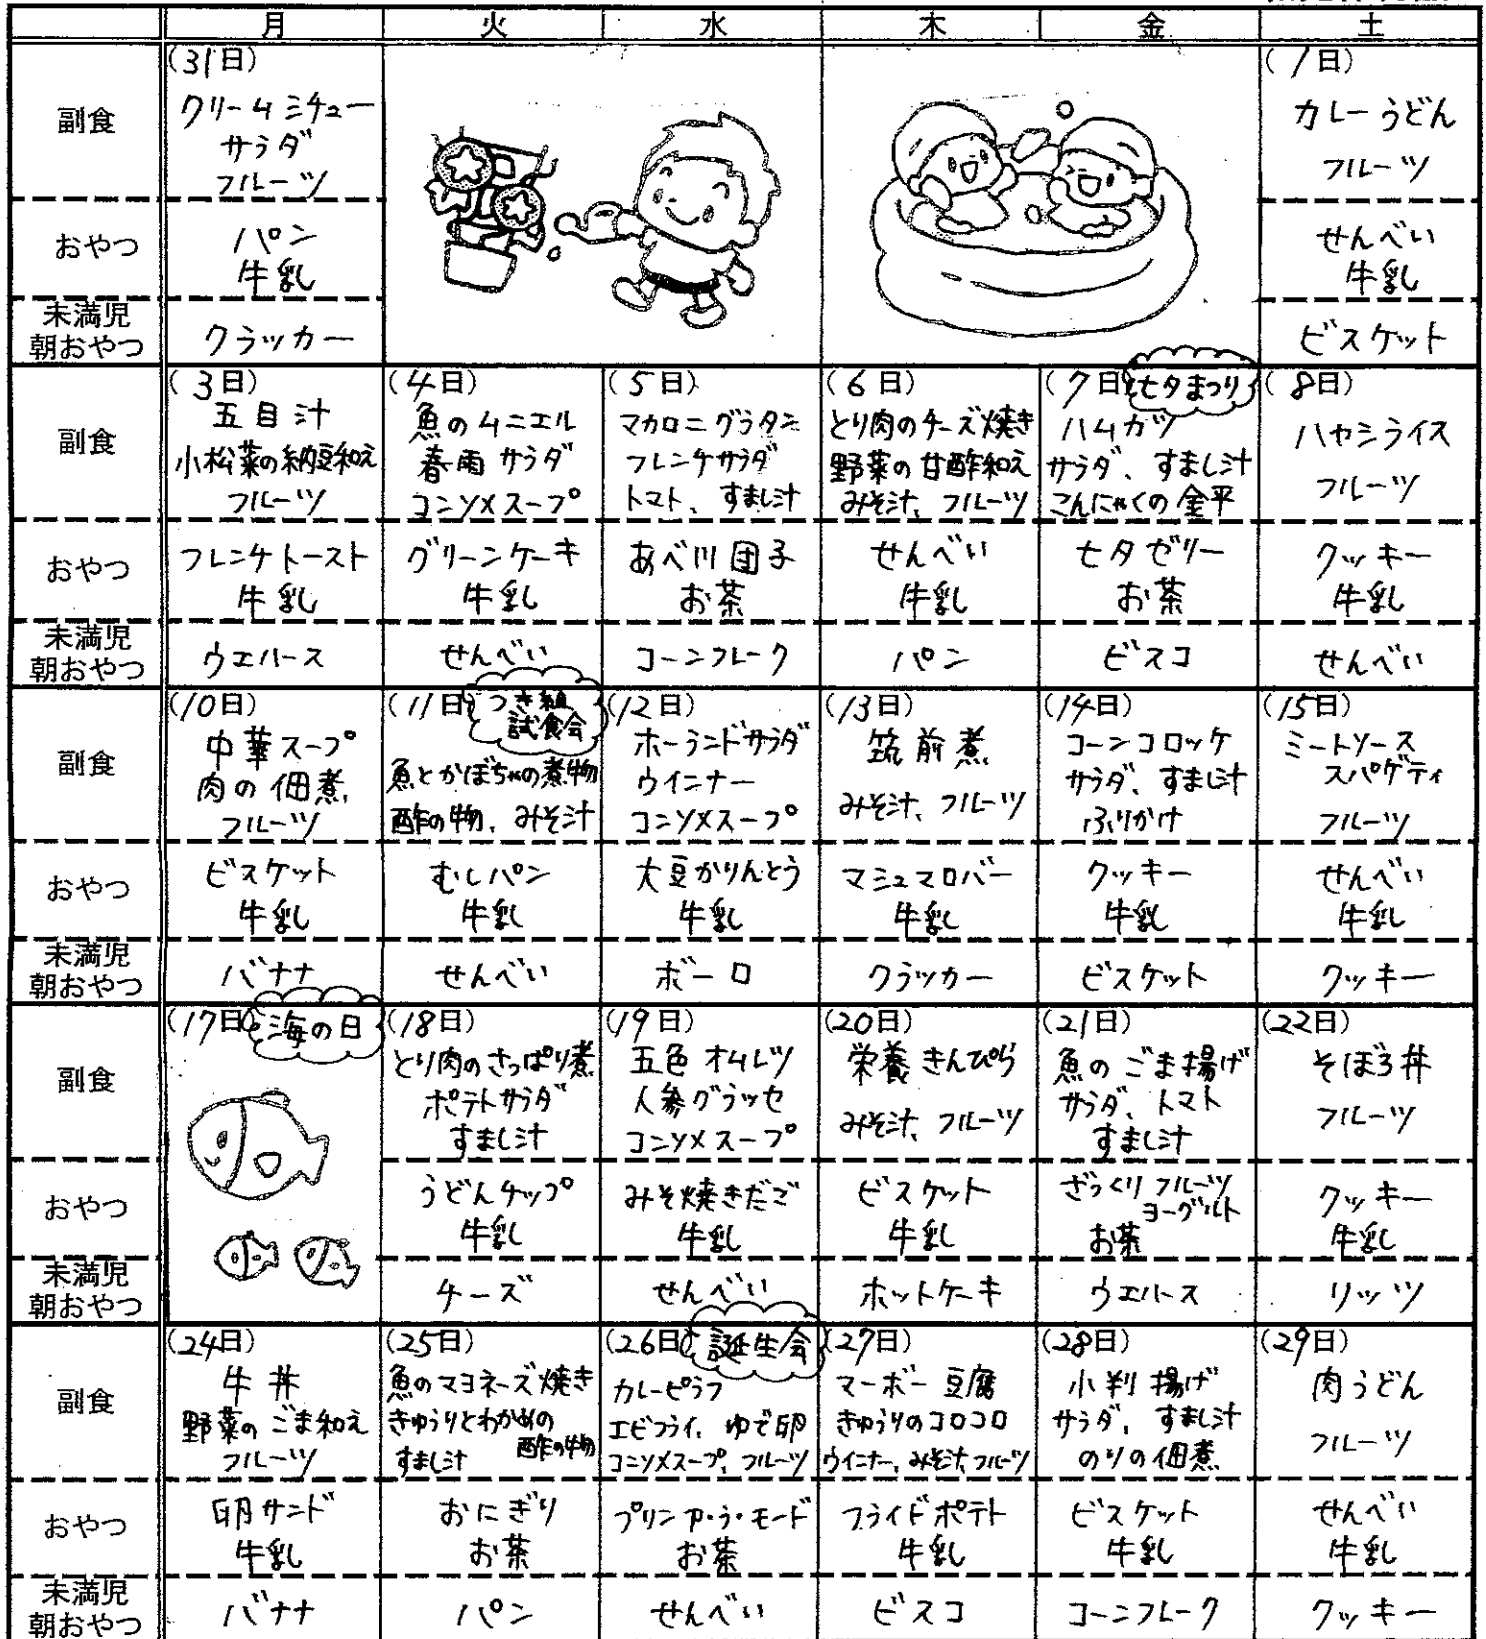 月 火 水 木 金 土
(31日) (1日)
副食
クリームシチュー
サラダ
フルーツ
カレーうどん
フルーツ
おやつ
パン
牛乳
せんべい
牛乳
未満児
朝おやつ
クラッカー
ビスケット
(3日) (4日) (5日) (6日) (7日) 七夕まつり (8日)
副食
五目汁
小松菜の納豆和え
フルーツ
魚のムニエル
春雨サラダ
コンソメスープ
マカロニグラタン
フレンチサラダ
トマト、すまし汁
とり肉のチーズ焼き
野菜の甘酢和え
みそ汁、フルーツ
ハムカツ
サラダ、すまし汁
こんにゃくの金平
ハヤシライス
フルーツ
おやつ
フレンチトースト
牛乳
グリーンケーキ
牛乳
あべ川団子
お茶
せんべい
牛乳
七夕ゼリー
お茶
クッキー
牛乳
未満児
朝おやつ
ウエハース
せんべい
コーンフレーク
パン
ビスコ
せんべい
(10日) (11日) つき組
試食会
(12日) (13日) (14日) (15日)
副食
中華スープ
肉の佃煮
フルーツ
魚とかぼちゃの煮物
酢の物、みそ汁
ホーランドサラダ
ウインナー
コンソメスープ
筑前煮
みそ汁、フルーツ
コーンコロッケ
サラダ、すまし汁
ふりかけ
ミートソース
スパゲティ
フルーツ
おやつ
ビスケット
牛乳
むしパン
牛乳
大豆かりんとう
牛乳
マシュマロバー
牛乳
クッキー
牛乳
せんべい
牛乳
未満児
朝おやつ
バナナ
せんべい
ボーロ
クラッカー
ビスケット
クッキー
(17日) 海の日 (18日) (19日) (20日) (21日) (22日)
副食
とり肉のさっぱり煮
ポテトサラダ
すまし汁
五色オムレツ
人参グラッセ
コンソメスープ
栄養きんぴら
みそ汁、フルーツ
魚のごま揚げ
サラダ、トマト
すまし汁
そぼろ丼
フルーツ
おやつ
うどんチップ
牛乳
みそ焼きだご
牛乳
ビスケット
牛乳
ざっくりフルーツ
ヨーグルト
お茶
クッキー
牛乳
未満児
朝おやつ
チーズ
せんべい
ホットケーキ
ウエハース
リッツ
(24日) (25日) (26日) 誕生会 (27日) (28日) (29日)
副食
牛丼
野菜のごま和え
フルーツ
魚のマヨネーズ焼き
きゅうりとわかめの
酢の物
すまし汁
カレーピラフ
エビフライ、ゆで卵
コンソメスープ、フルーツ
マーボー豆腐
きゅうりのコロコロ
ウインナー、みそ汁、フルーツ
小判揚げ
サラダ、すまし汁
のりの佃煮
肉うどん
フルーツ
おやつ
卵サンド
牛乳
おにぎり
お茶
プリンア・ラ・モード
お茶
フライドポテト
牛乳
ビスケット
牛乳
せんべい
牛乳
未満児
朝おやつ
バナナ
パン
せんべい
ビスコ
コーンフレーク
クッキー